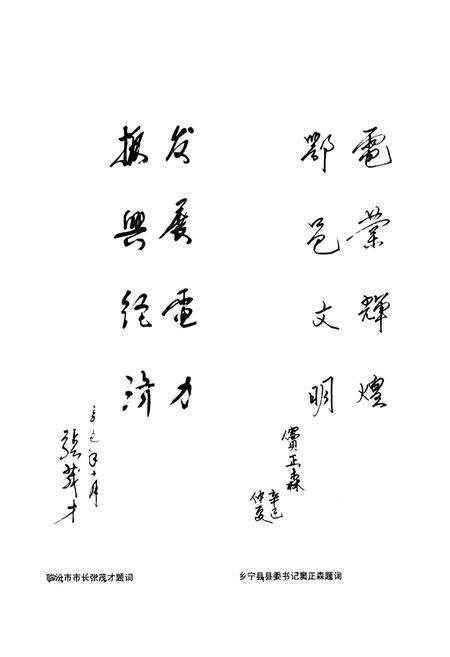 電業輝煌
鄂邑文明
竇正森
辛巳
仲夏
发展電力
振興经濟
辛巳年十月
張茂才
临汾市市长张茂才题词
乡宁县县委书记窦正森题词